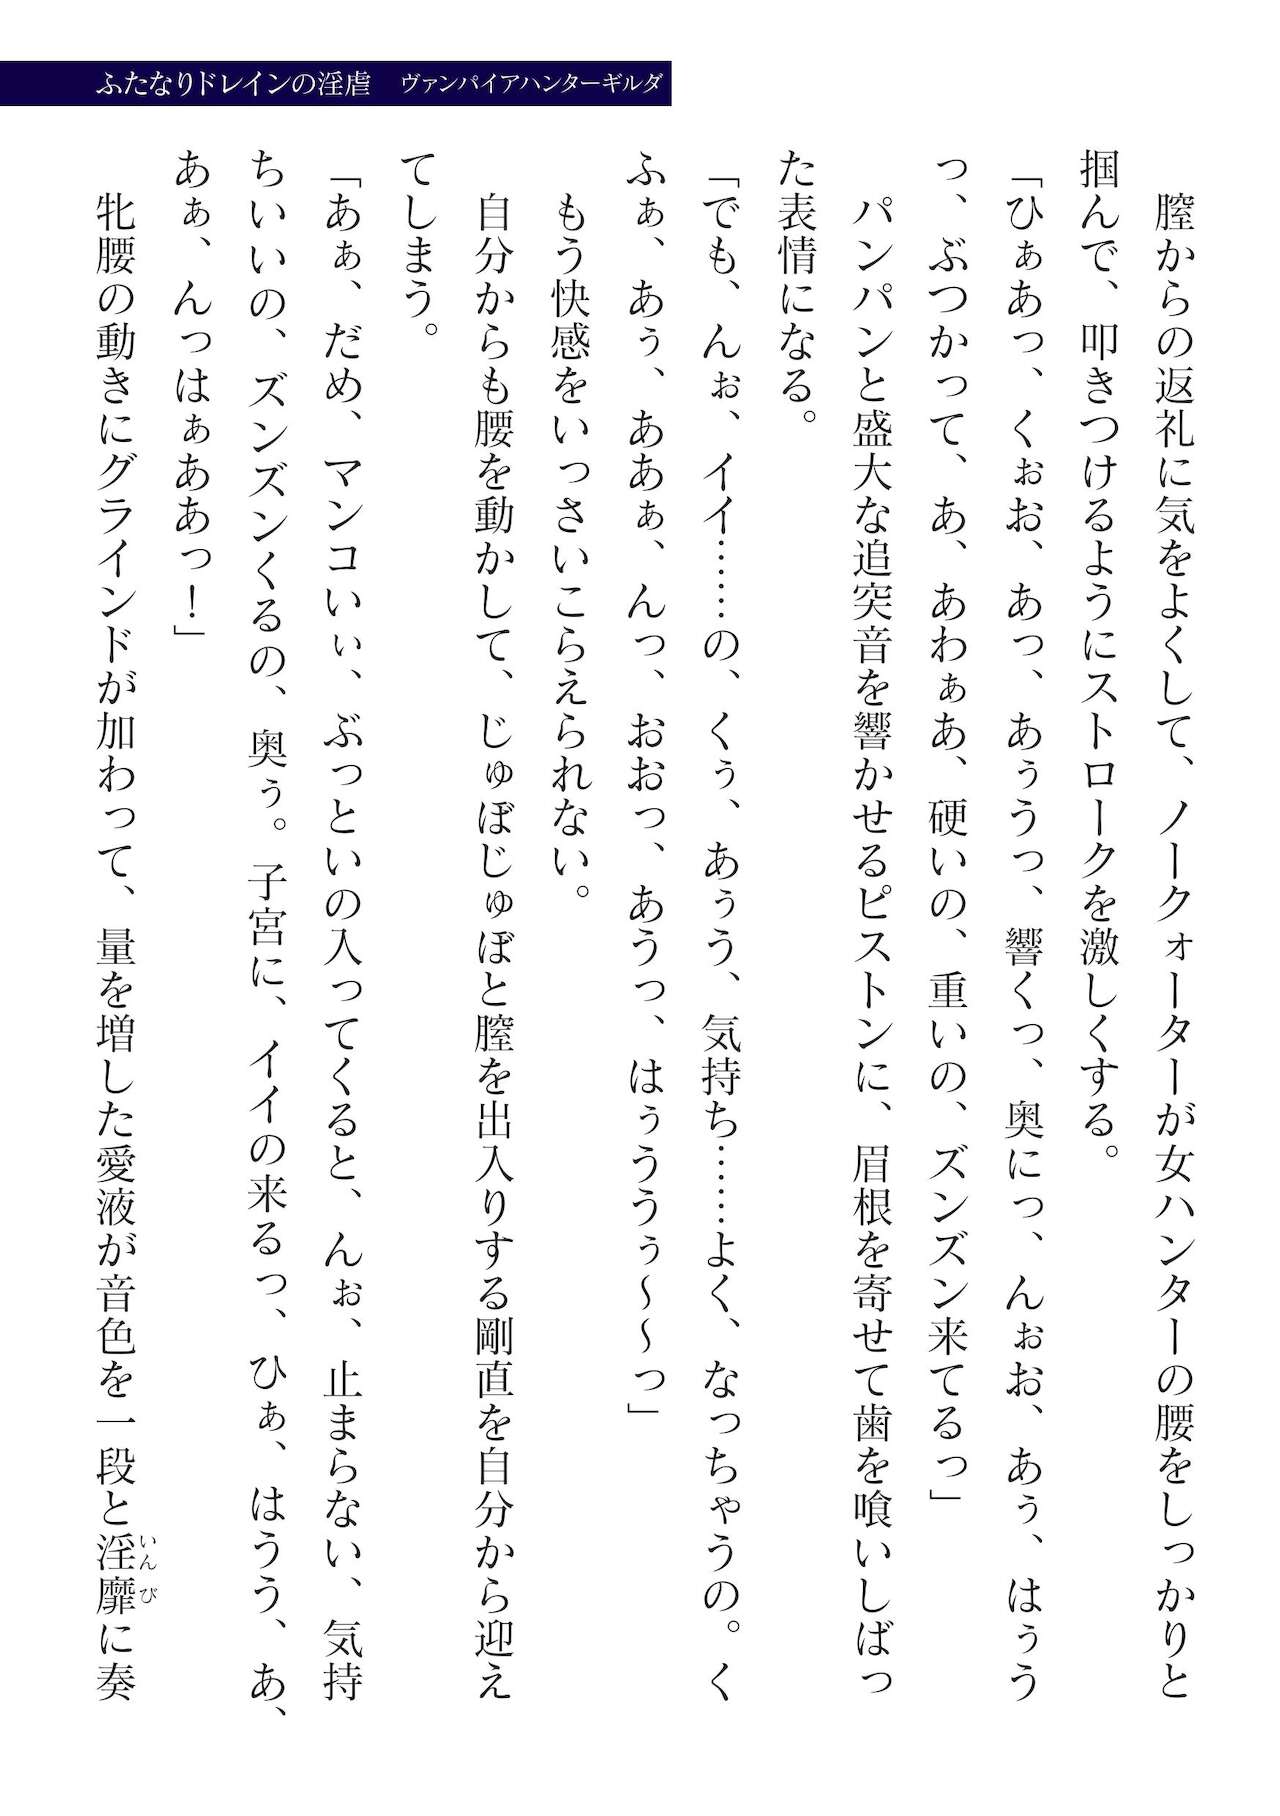 ふたなりドレインの淫虐　ヴァンパイアハンターギルダ
　膣からの返礼に気をよくして、ノークォーターが女ハンターの腰をしっかりと
掴んで、叩きつけるようにストロークを激しくする。
「ひぁあっ、くぉお、あっ、あぅうっ、響くっ、奥にっ、んぉお、あぅ、はぅう
っ、ぶつかって、あ、あわぁあ、硬いの、重いの、ズンズン来てるっ」
　パンパンと盛大な追突音を響かせるピストンに、眉根を寄せて歯を喰いしばっ
た表情になる。
「でも、んぉ、イイ……の、くぅ、あぅう、気持ち……よく、なっちゃうの。く
ふぁ、あぅ、ああぁ、んっ、おおっ、あうっ、はぅううぅ～～っ」
　もう快感をいっさいこらえられない。
　自分からも腰を動かして、じゅぼじゅぼと膣を出入りする剛直を自分から迎え
てしまう。
「あぁ、だめ、マンコいぃ、ぶっといの入ってくると、んぉ、止まらない、気持
ちいいの、ズンズンくるの、奥ぅ。子宮に、イイの来るっ、ひぁ、はうう、あ、
あぁ、んっはぁああっ！」
　牝腰の動きにグラインドが加わって、量を増した愛液が音色を一段と淫靡に奏
いんび